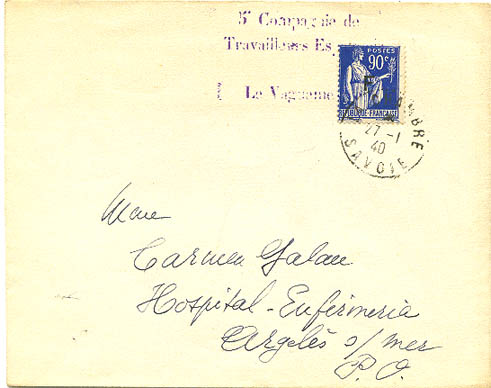 5e Compagnie de
Travailleurs Es
Le Vagueme
POSTES
90c
FRANÇAISE
AMBRE
27-1
40
SAVOIE
Mme
Carmen Galan
Hospital-Enfermeria
Argelès s/mer
P.O.